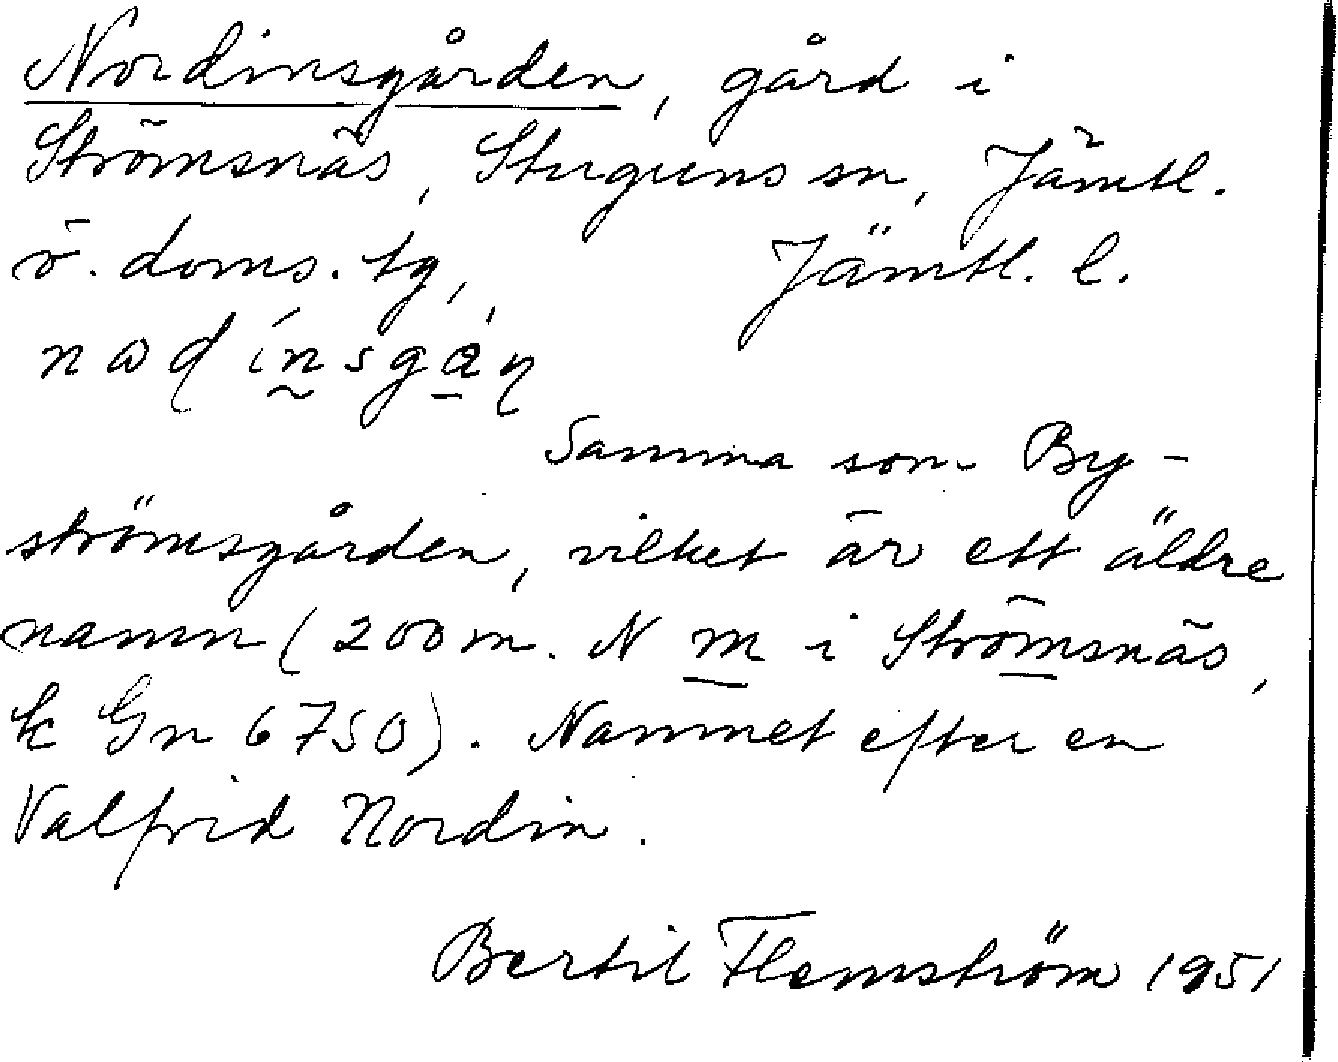 Nordinsgården, gård i
Strömsnäs, Stuguns sn, Jämtl.
ö. doms. tg, Jämtl. l.
Samma som By-
strömsgården, vilket är ett äldre
namn (200 m. N m i Strömsnäs,
k Gn 6750). Namnet efter en
Valfrid Nordin.
Bertil Flemström 1951